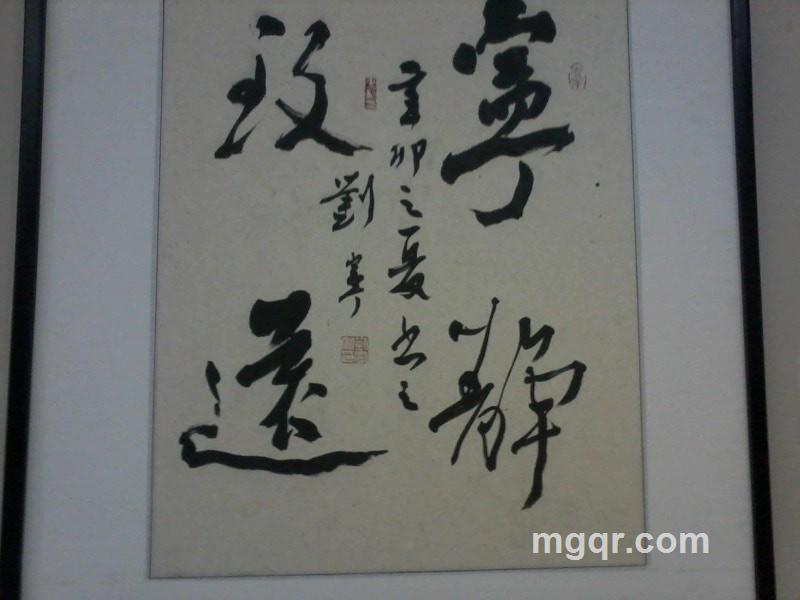 寧靜
致遠
辛卯之夏書之
劉寧
mgqr.com